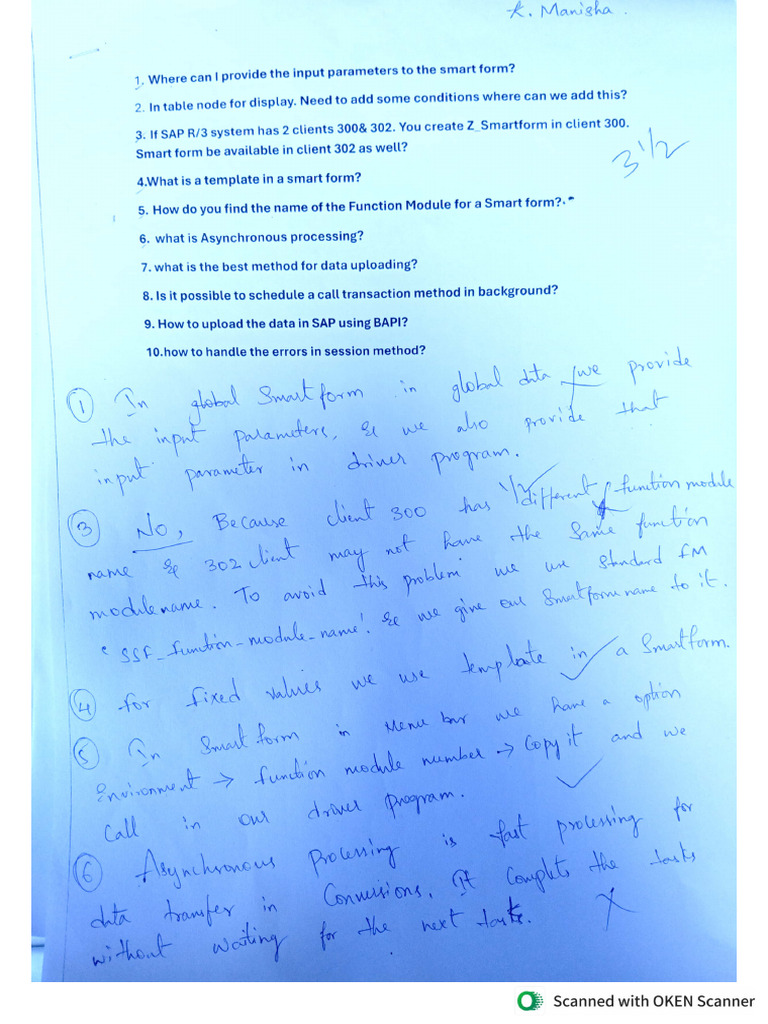 K. Manisha.
1. Where can I provide the input parameters to the smart form?
2. In table node for display. Need to add some conditions where can we add this?
3. If SAP R/3 system has 2 clients 300& 302. You create Z_Smartform in client 300.
Smart form be available in client 302 as well?
3 1/2
4.What is a template in a smart form?
5. How do you find the name of the Function Module for a Smart form?.
6. what is Asynchronous processing?
7. what is the best method for data uploading?
8. Is it possible to schedule a call transaction method in background?
9. How to upload the data in SAP using BAPI?
10.how to handle the errors in session method?
① In global Smart form in global data we provide
the input parameters, & we also provide that
input parameter in driver program.
1/2
③ No, Because client 300 has different function module
name & 302 client may not have the same function
module name. To avoid this problem we use standard FM
'SSF_function-module-name'. & we give our Smartform name to it.
④ for fixed values we use template in a Smartform.
⑤ In Smart form in Menu bar we have a option
Environment → function module number → Copy it and we
call in our driver program.
⑥ Asynchronous Processing is fast processing for
data transfer in Conversions. It complets the tasks
without waiting for the next task.
Scanned with OKEN Scanner